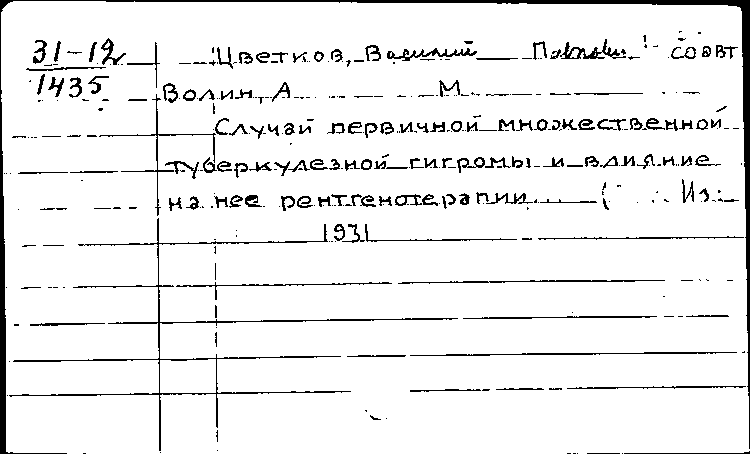 31-12 Цветков, Василий Павлович соавт
1435 Волин, А М
Случай первичной множественной
туберкулезной гигромы и влияние
на нее рентгенотерапии ( Из:
1931